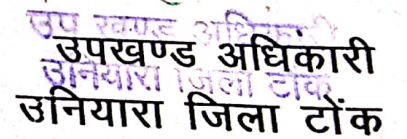 उप खण्ड अधिकारी
उपखण्ड अधिकारी
उनियारा जिला टोंक
उनियारा जिला टोंक